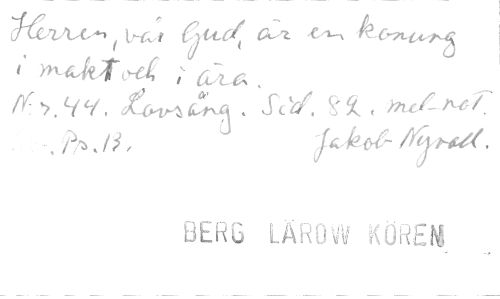 Herren, vår Gud, är en konung
i makt och i ära.
N:r. 44. Lovsång. Sid. 82. mel-not.
Ps. B. Jakob Nyvall.
BERG LÄROW KÖREN